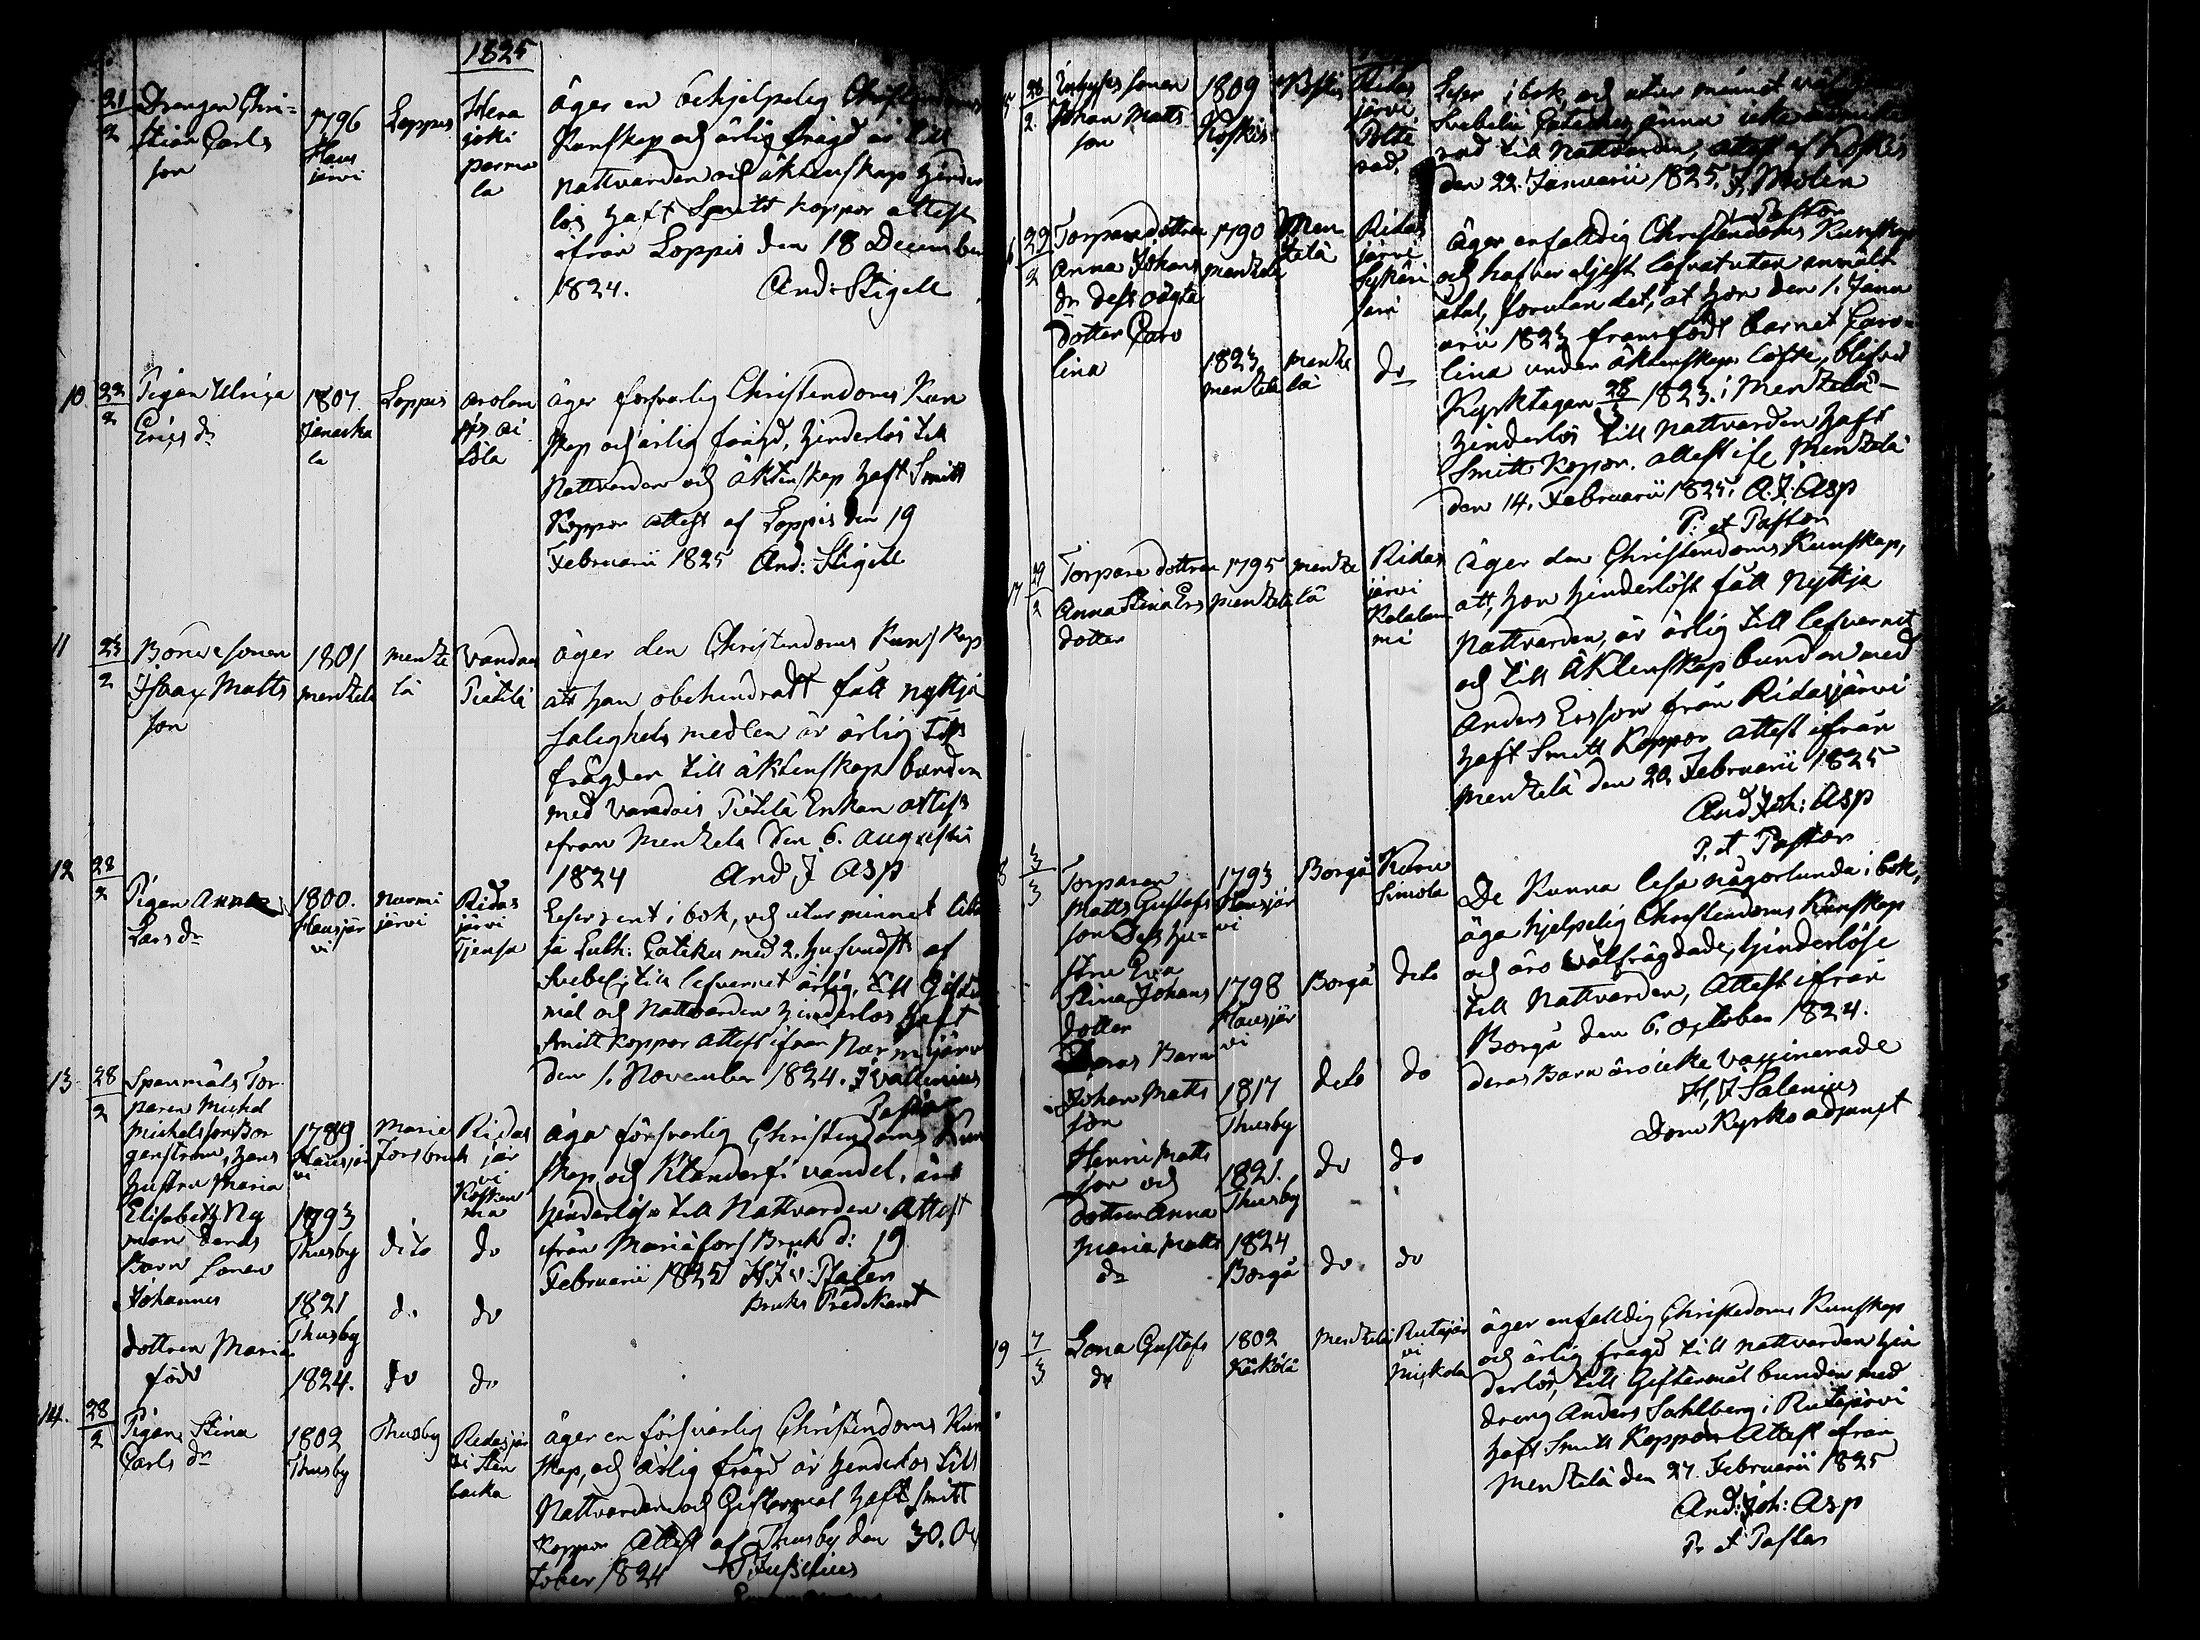 1825
21/2 Drengen Chri-
stian Carls
son
1796
Haus
järvi
Loppis
Hera
joki
parma
la
äger en behjelpelig Christendoms
Kunskap och ärlig frägd är till
nattvarden och äktenskap hinder
lös haft Smitt koppor attest
ifrån Loppis den 18 December
1824. And: Stigell
10 22/2 Pigan Ulrica
Erics dr
1807.
Janacka
la
Loppis
äger försvarlig Christendoms Kun
skap och ärlig frägd, hinderlös till
Nattvarden och äktenskap haft Smitt
Koppor attest af Loppis den 19
Februarii 1825 And: Stigell
11 23/2 Bondesonen
Isaac Matts
son
1801
mentzelä
mentze
lä
Vandais
Pietilä
äger den Christendoms Kunskap
att han obehindradt fått nyttja
salighets medlen är ärlig till
frägden till äktenskap bunden
med Vandais Pietilä Enkan attest
ifrån Mentzelä den 6. Augusti
1824 And J Asp
12 28/2
Pigan Anna
Lars dr
1800.
Hausjär
vi
Nurmi
järvi
Ridas
järvi
Läser rent i bok, och utur minnet
Luth: Cateches med 2. hufvudst af
Svebel; till lefvernet ärlig, till Gifter
mål och Nattvarden hinderlös haft
Smitt koppor attest ifrån Nurmijärvi
den 1. November 1824. J Wallenius
Pastor
13 28/2 Spanmåls Tor
paren Michel
Michelsson Bor
genström, hans
hustru Maria
Elisabeth Ny
man deras
Barn Sonen
Johannes
dottren Maria
född
1789
Hausjär
vi
1793
Thusby
1821
Thusby
1824.
Marie
Forsbruk
dito
do
do
Ridas
jär
vi
Kosken
ma
do
do
do
äga försvarlig Christendoms Kun
skap och Klanderfri vandel, äro
hinderlöse till Nattvarden. Attest
ifrån Mariæfors Bruk d: 19
Februarii 1825 H.J. v: Pfaler
Bruks Predikant
14. 28/2 Pigan Stina
Carls dr
1802
Thusby
Thusby
Ridasjär
vi Sten
backa
äger en försvarlig Christendoms Kun
skap, och ärlig frägd är hinderlös till
Nattvarden och Giftermål haft Smitt
Koppor Attest af Thusby den 30. Oc
tober 1824
5 28/2 Inhyses sonen
Johan Matts
son
1809
Koskis
Koskis
Ridas
järvi
Läser i bok, och utur minnet
Svebelii Cateches, ännu icke
rad till Nattvarden, attest af Koskis
den 22. Januarii 1825. J. Molin
Pastor
6 29/2 Torparedottren
Anna Johans
dr dess oägta
dotter Caro
lina
1790
mentzelä
1823
mentzelä
Men
tzelä
mentze
lä
Ridas
järvi
do
Äger enfaldig Christendoms Kunskap
och hafver eljest lefvat utan anmält
åtal, förutan det, at hon den 1. Janu
arii 1823 framfödt barnet Caro-
lina under äktenskaps löfte, blifvit
Kyrktagen 28/3 1823. i Mentzelä
hinderlös till Nattvarden haft
Smitt Koppor. attest ifr Mentzelä
den 14. Februarii 1825. A.J. Asp
P: et Pastor
17 29/2 Torpare dottren
Anna Stina Ers
dotter
1795
Mentzelä
mentze
lä
Ridas
järvi
Kalalam
mi
äger den Christendoms Kunskap,
att, hon hinderlöst fått Nyttja
Nattvarden, är ärlig till lefvernet
och till Äktenskap bunden med
Anders Ersson från Ridasjärvi
haft Smitt Koppor attest ifrån
Mentzelä den 22 Februarii 1825
And Joh: Asp
P. et Pastor
8 3/3 Torparen
Matts Gustafs
son Dess hu-
stru Eva
Stina Johans
dotter
Deras Barn
Johan Matts
son
Henric Matts
son och
dottren Anna
Maria Matts
dr
1793
Hausjär
vi
1798
Hausjär
vi
1817
Thusby
1821.
Thusby
1824
Borgå
Borgå
Borgå
deto
do
do
Karu
Simola
deto
do
do
do
De Kunna läsa någorlunda i bok,
äga hjelpelig Christendoms Kunskap
och äro välfrägdade, hinderlöse
till Nattvarden, Attest ifrån
Borgå den 6. October 1824.
deras Barn äro icke vaccinerade
H, J Salenius
Dom Kyrko adjunct
19 7/3 Lena Gustafs
dr
1802
Kärkölä
Mentzelä
Rutajär
vi
äger enfalldig Christedoms Kunskap
och ärlig frägd till Nattvarden hin
derlös, till Giftermål bunden med
dreng Anders Sahlberg i Rutajärvi
haft Smitt Koppor Attest ifrån
Mentzelä den 27. Februarii 1825
And: Joh: Asp
P. et Pastor